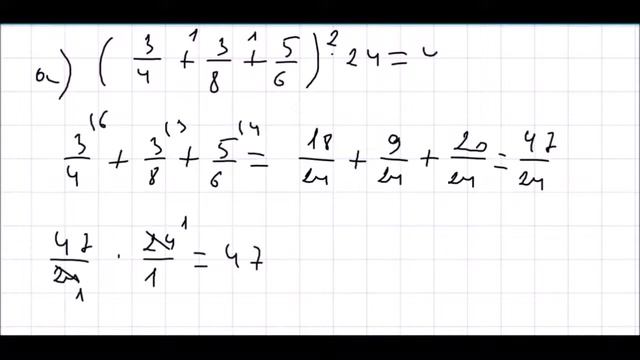 a) (3/4 +¹ 3/8 +¹ 5/6) ·² 24 =
3/4⁽⁶ + 3/8⁽³ + 5/6⁽⁴ = 18/24 + 9/24 + 20/24 = 47/24
47/24₁ · 24¹/1 = 47